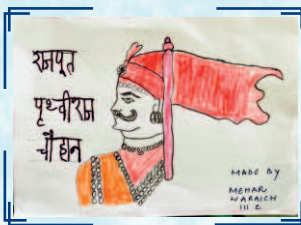 राजपूत
पृथ्वीराज
चौहान
MADE BY
MEHAR
WARAICH
III C